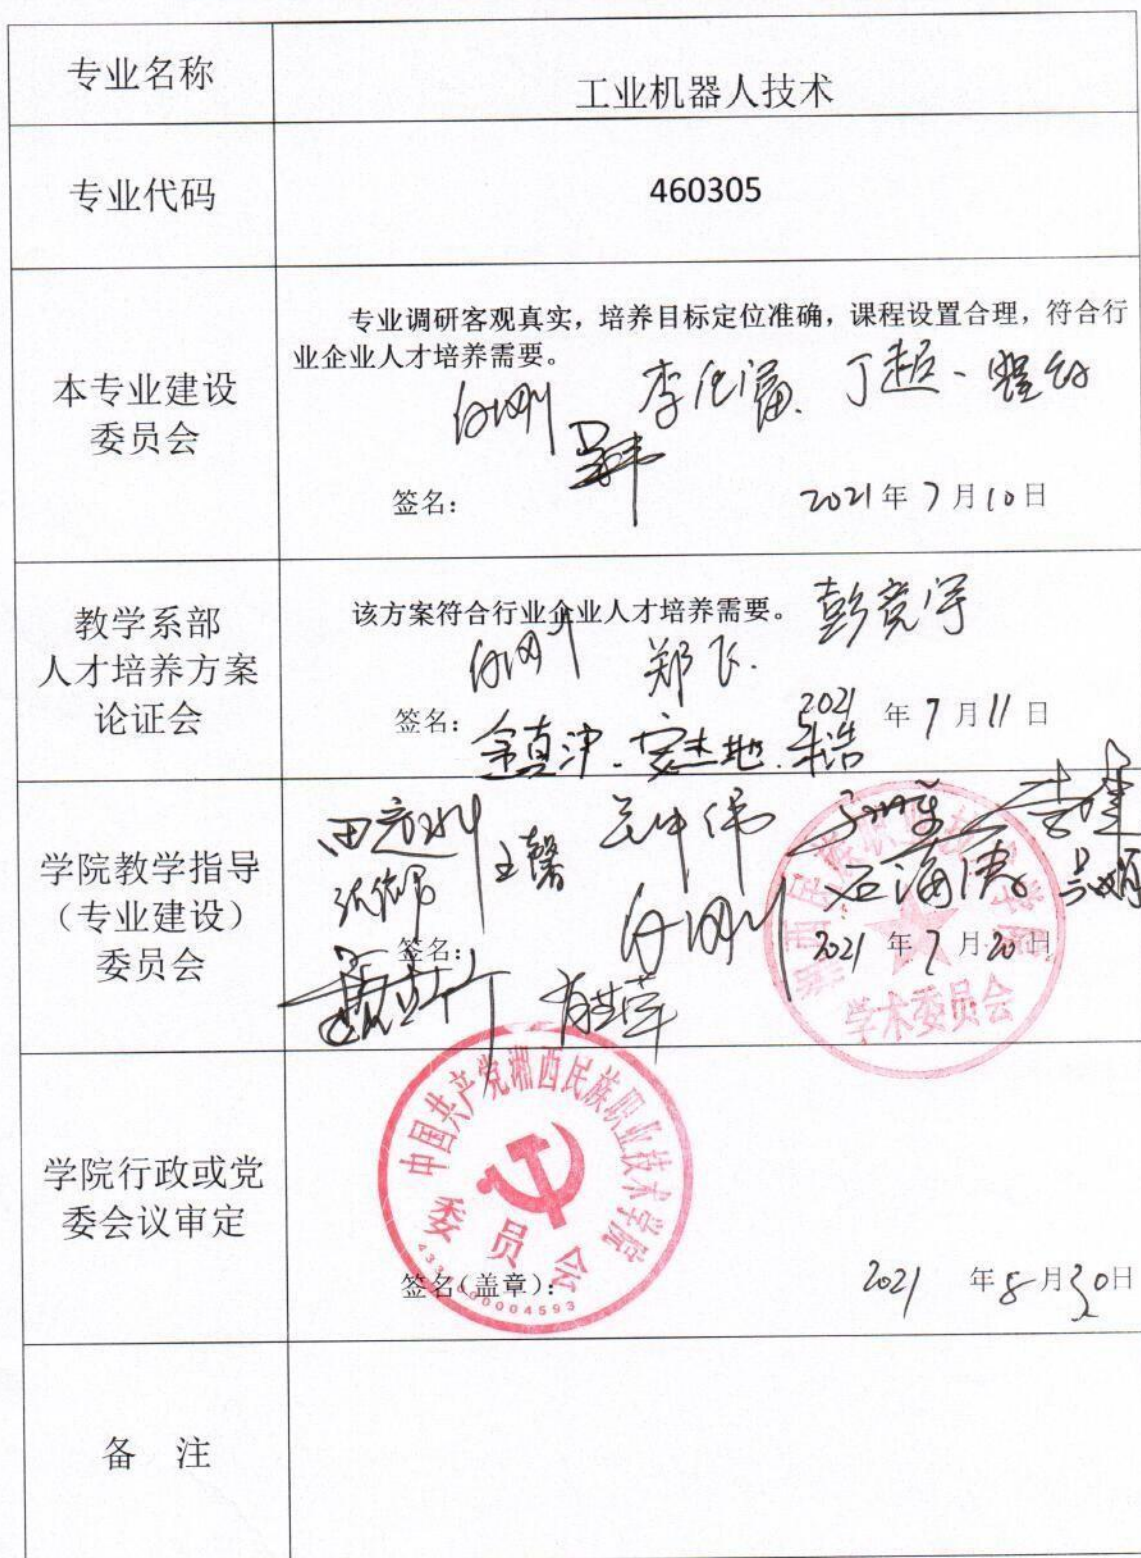 专业名称
工业机器人技术
专业代码
460305
本专业建设
委员会
专业调研客观真实，培养目标定位准确，课程设置合理，符合行
业企业人才培养需要。
丁超
签名：
2021年7月10日
教学系部
人才培养方案
论证会
该方案符合行业企业人才培养需要。
郑飞
签名：
2021年7月11日
学院教学指导
（专业建设）
委员会
王馨
签名：
2021年7月20日
学术委员会
学院行政或党
委会议审定
中国共产党湘西民族职业技术学院
委员会
签名(盖章)：
2021年8月30日
备 注